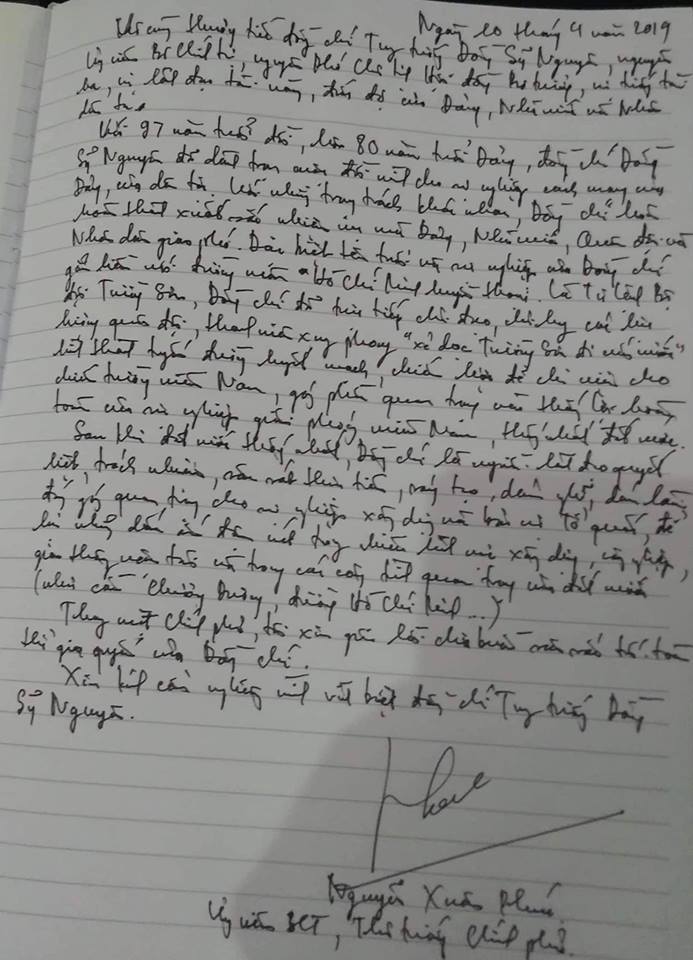 Ngày 10 tháng 4 năm 2019
Vô cùng thương tiếc đồng chí Trung tướng Đồng Sỹ Nguyên, nguyên
Ủy viên Bộ Chính trị, nguyên Phó Chủ tịch Hội đồng Bộ trưởng, vị tướng tài
ba, vị lãnh đạo tài năng, của Đảng, Nhà nước và Nhân
dân ta.
Với 97 năm tuổi đời, hơn 80 năm tuổi Đảng, đồng chí Đồng
Sỹ Nguyên đã dành trọn cuộc đời mình cho sự nghiệp cách mạng của
Đảng, của dân tộc. Với những trọng trách khác nhau, Đồng chí luôn
hoàn thành xuất sắc nhiệm vụ mà Đảng, Nhà nước, Quân đội và
Nhân dân giao phó. Đặc biệt tên tuổi và sự nghiệp của Đồng chí
gắn liền với đường mòn "Hồ Chí Minh huyền thoại. Là Tư lệnh Bộ
đội Trường Sơn, Đồng chí đã trực tiếp chỉ đạo, chỉ huy các lực
lượng quân đội, thanh niên xung phong "xẻ dọc Trường Sơn đi cứu nước"
hình thành tuyến đường huyết mạch, chiến lược để chi viện cho
chiến trường miền Nam, góp phần quan trọng vào thắng lợi hoàn
toàn của sự nghiệp giải phóng miền Nam, thống nhất đất nước.
Sau khi đất nước thống nhất, Đồng chí là người lãnh đạo quyết
liệt, trách nhiệm, sâu sát thực tiễn, sáng tạo, dám nghĩ, dám làm,
đóng góp quan trọng cho sự nghiệp xây dựng và bảo vệ Tổ quốc, để
lại những dấu ấn đậm nét trong chiến lược xây dựng, công nghiệp,
giao thông vận tải và trong các công trình quan trọng của đất nước
(như cầu Chương Dương, đường Hồ Chí Minh...)
Thay mặt Chính phủ, tôi xin gửi lời chia buồn sâu sắc tới toàn
thể gia quyến của Đồng chí.
Xin kính cẩn nghiêng mình vĩnh biệt đồng chí Trung tướng Đồng
Sỹ Nguyên.
Nguyễn Xuân Phúc
Ủy viên BCT, Thủ tướng Chính phủ.